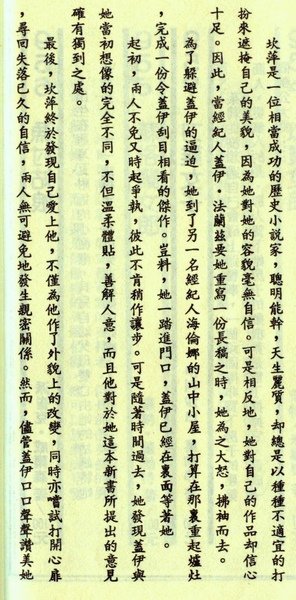 坎萍是一位相當成功的歷史小說家，聰明能幹，天生麗質，却總是以種種不適宜的打
扮來遮掩自己的美貌，因為她對她的容貌毫無自信。可是相反地，她對自己的作品却信心
十足。因此，當經紀人蓋伊．法蘭茲要她重寫一份長稿之時，她為之大怒，拂袖而去。
為了躲避蓋伊的逼迫，她到了另一名經紀人海倫娜的山中小屋，打算在那裏重起爐灶
，完成一份令蓋伊刮目相看的傑作。豈料，她一踏進門口，蓋伊已經在裏面等著她。
起初，兩人不免又時起爭執，彼此不肯稍作讓步。可是隨著時間過去，她發現蓋伊與
她當初想像的完全不同，不但溫柔體貼，善解人意，而且他對於她這本新書所提出的意見
確有獨到之處。
最後，坎萍終於發現自己愛上他，不僅為他作了外貌上的改變，同時亦嚐試打開心扉
，尋回失落已久的自信，兩人無可避免地發生親密關係。然而，儘管蓋伊口口聲聲讚美她